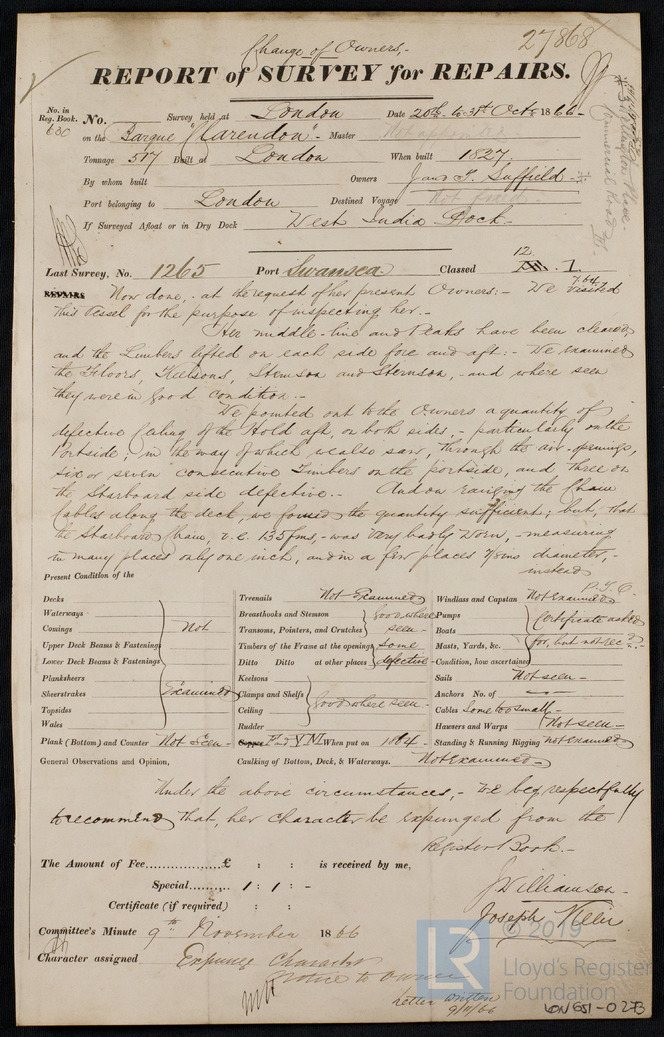 Change of Owners,-
27868
REPORT of SURVEY for REPAIRS.
No. in Reg. Book. No. Survey held at London Date 20th to 31st Octr 1866-
680 on the Barque "Clarendon" - Master
Tonnage 517 Built at London When built 1827
By whom built Owners Jams T. Suffield -
Port belonging to London Destined Voyage
If Surveyed Afloat or in Dry Dock West India Dock -
Wellington Place
Commercial Road
12
Last Survey, No. 1265 Port Swansea Classed 1.
7.64
REPAIRS Now done, - at the request of her present Owners:- We visited
this vessel for the purpose of inspecting her. -
Her middle-line and Peaks have been cleared
and the Limbers lifted on each side fore and aft:- We examined
the Floors, Keelsons, Stemson and Sternson, - and where seen
they were in good condition. -
We pointed out to the Owners a quantity of
defective Ceiling of the Hold aft, on both sides, - particularly on the
Portside, in the way of which we also saw, through the air-openings,
six or seven consecutive Timbers on the portside, and three on
the Starboard side defective. - And on ranging the Chain
Cables along the deck, we found the quantity sufficient; but, that
the Starboard Chain, v.z. 135 fms, - was very badly worn, - measuring
in many places only one inch, and in a few places 7/8ins diameter, -
instead
P.T.O.
Present Condition of the
Decks
Waterways
Comings Not
Upper Deck Beams & Fastenings
Lower Deck Beams & Fastenings
Planksheers
Sheerstrakes Examined
Topsides
Wales
Plank (Bottom) and Counter Not Seen -
General Observations and Opinion,
Treenails Not Examined
Breasthooks and Stemson good where
Transoms, Pointers, and Crutches seen -
Timbers of the Frame at the openings some
Ditto Ditto at other places defective -
Keelsons
Clamps and Shelfs good where seen -
Ceiling
Rudder
Copper F and YM. When put on 1864 -
Caulking of Bottom, Deck, & Waterways. Not Examined -
Windlass and Capstan Not Examined
Pumps Certificate asked
Boats
Masts, Yards, &c. for, but not rec'd. -
Condition, how ascertained
Sails Not seen -
Anchors No. of
Cables Some too small -
Hawsers and Warps Not seen -
Standing & Running Rigging not examined
Under the above circumstances, - We beg respectfully
to recommend that, her character be expunged from the
Register Book. -
The Amount of Fee £ : : is received by me,
Special 1 : 1 : -
Certificate (if required) : :
J Williamson -
Joseph
Committee's Minute 9th November 1866
Character assigned Expunge Character
Notice to Owner
Letter written
9/11/66
LR
© 2019
Lloyd's Register
Foundation
LON 651-0273